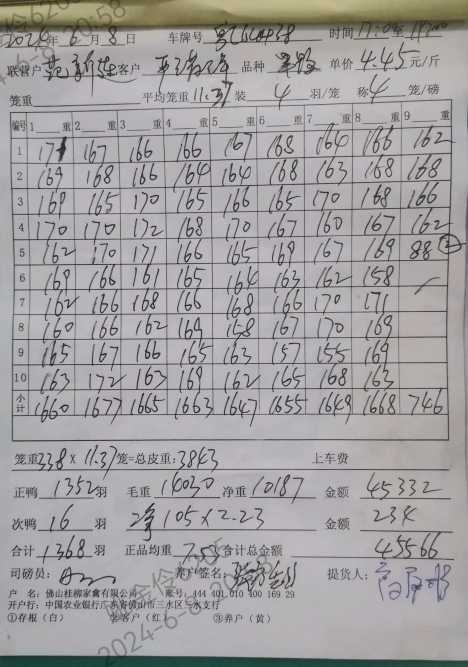 2024年6月8日 车牌号 时间17:0至
联营户 客户 品种 单价4.45元/斤
笼重 平均笼重11.37装4羽/笼 称4笼/磅
编号 1 重 2 重 3 重 4 重 5 重 6 重 7 重 8 重 9 重
1 171 167 166 166 167 168 164 166 162
2 169 168 166 164 164 168 163 168 168
3 169 165 170 165 166 165 170 168 166
4 170 170 172 168 170 167 160 167 162
5 162 170 171 166 165 169 167 169 88 ②
6 169 166 161 165 164 163 162 158
7 162 166 168 166 168 166 170 171
8 160 166 162 169 158 167 170 169
9 165 167 166 165 163 157 155 169
10 163 172 163 169 162 165 168 163
小计 1660 1677 1665 1663 1647 1655 1649 1668 746
笼重338×11.37笼=总皮重:3843 上车费
正鸭1352羽 毛重14030净重10187 金额45332
次鸭16羽 净105×2.23 金额234
合计1368羽 正品均重7.53合计总金额45566
司磅员: 养户签名: 提货人:
户 名:佛山桂柳家禽有限公司 账号:444 401 010 400 169 29
开户行:中国农业银行广东省佛山市三水区三水支行
①存根(白) ②客户(红) ③养户(黄)